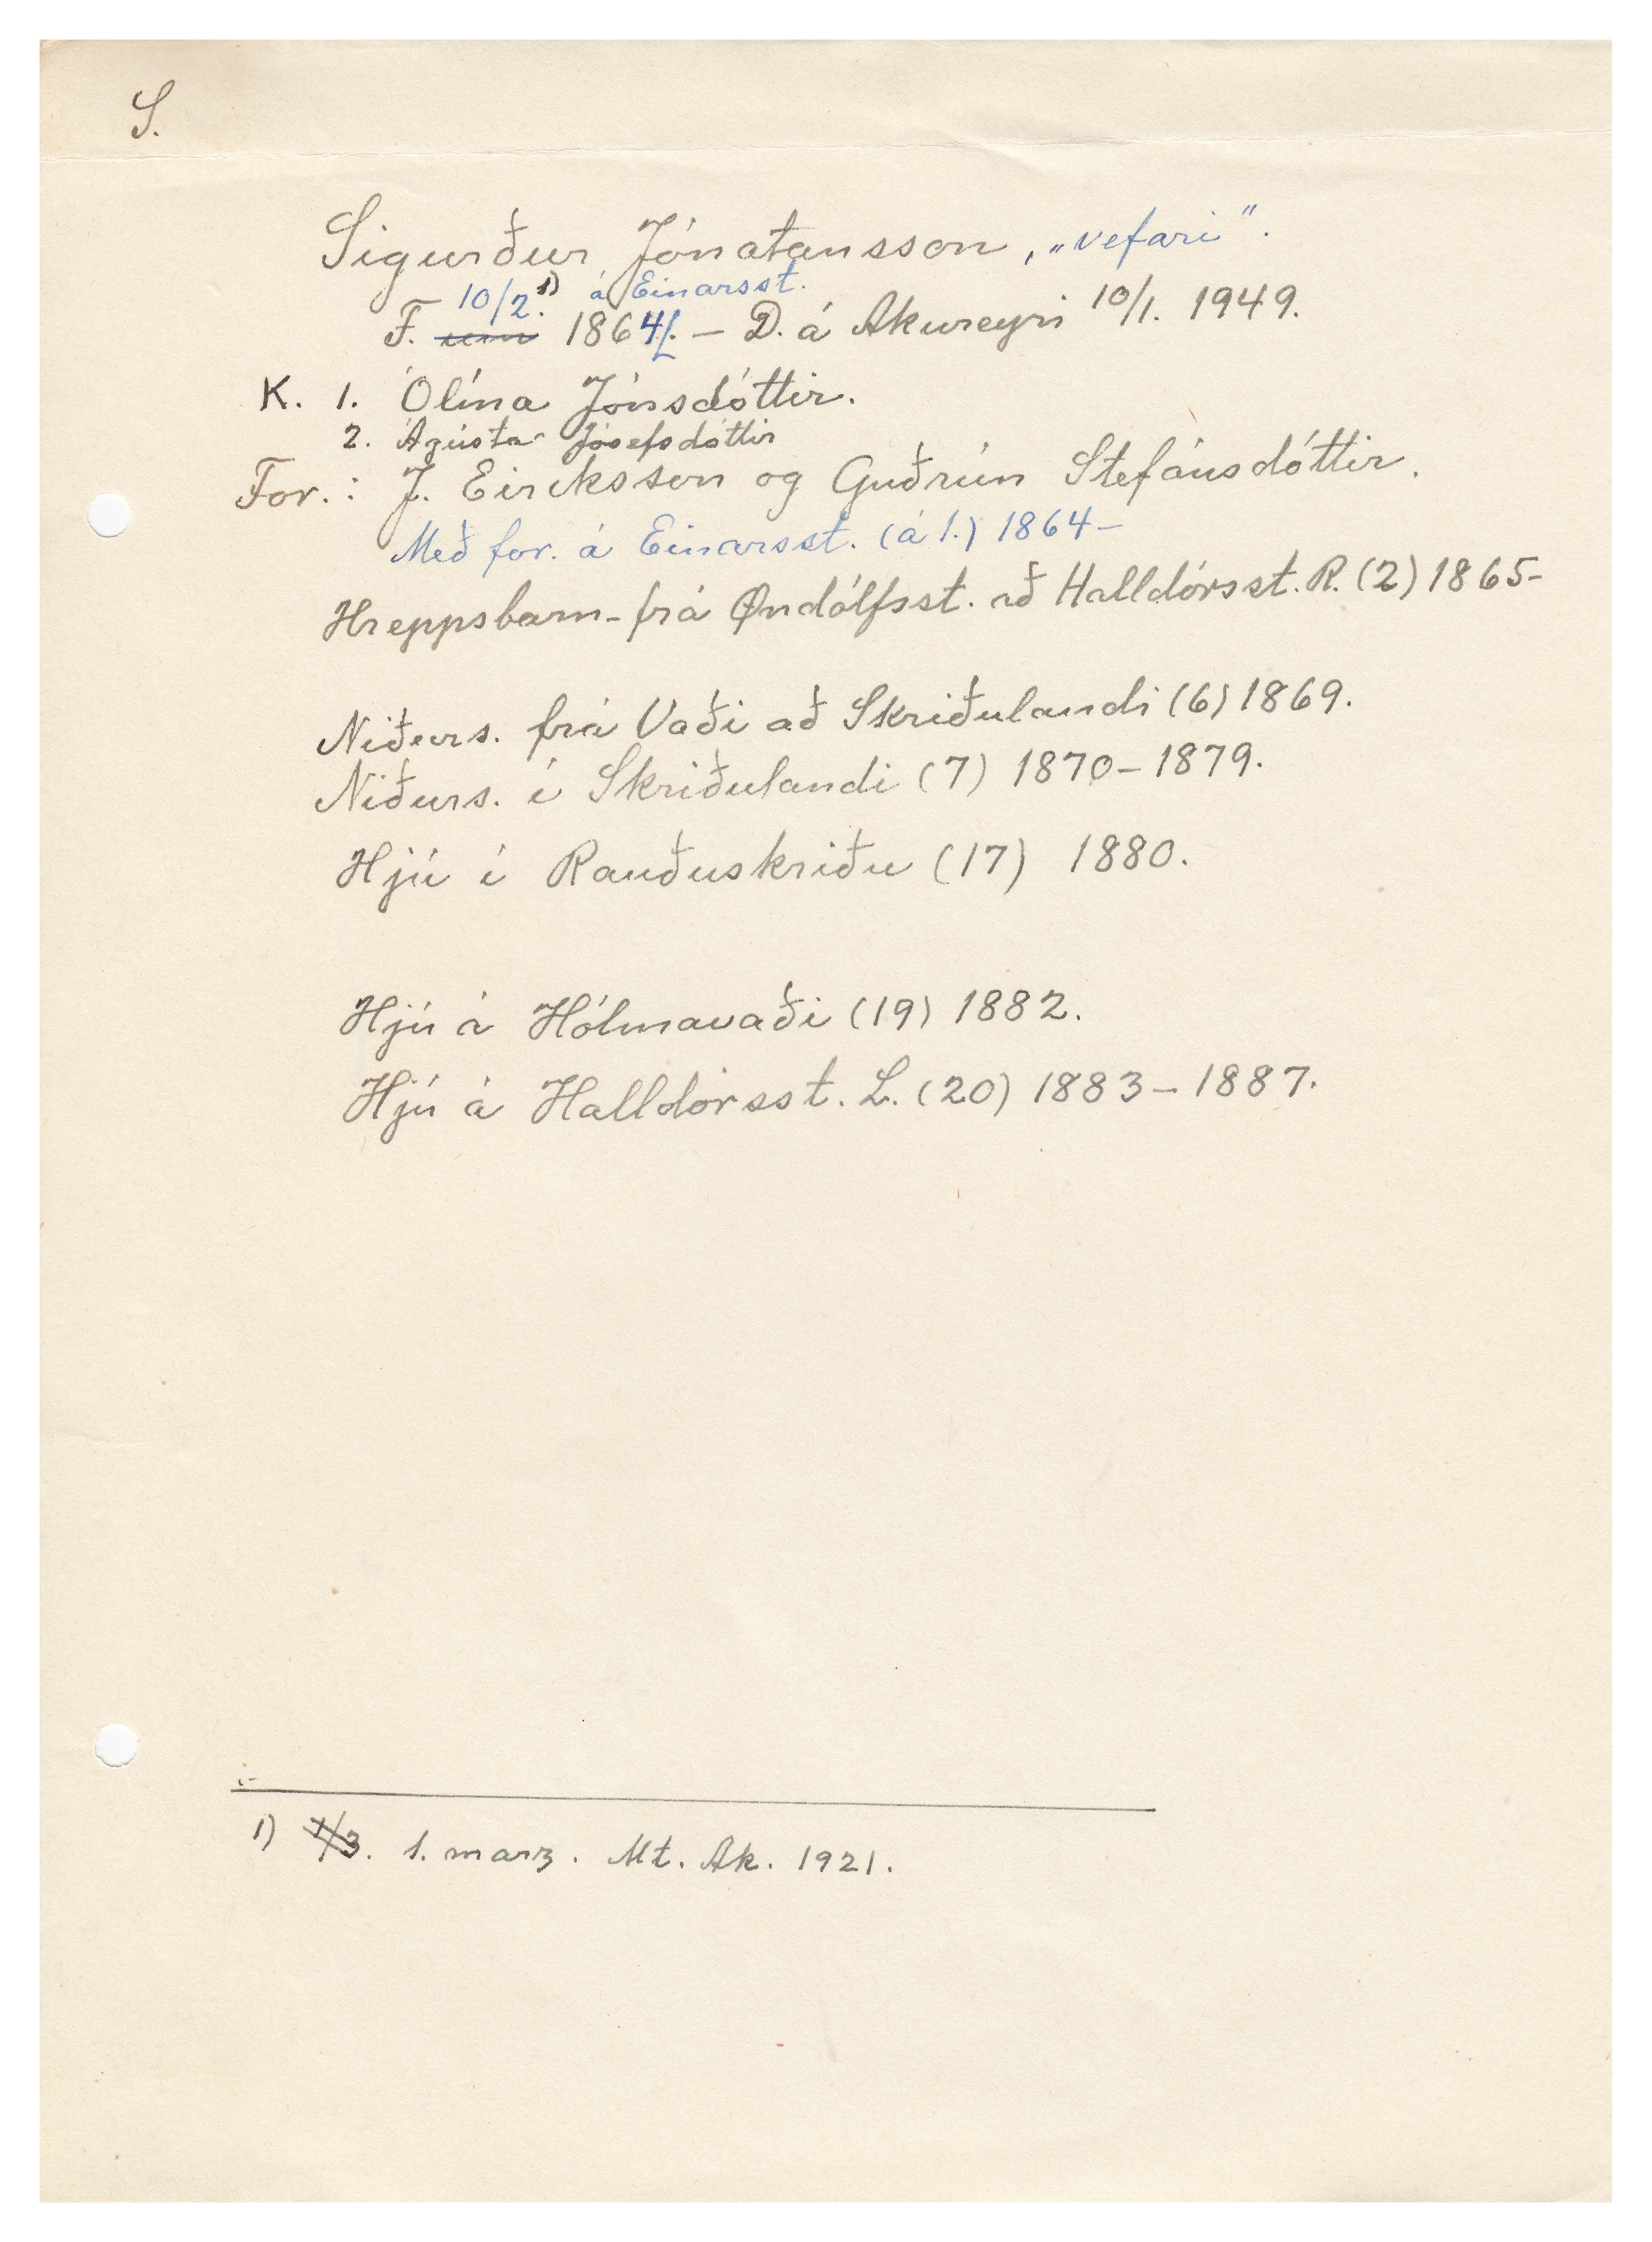 S.
Sigurður Jónatansson, „vefari".
10/2. 1) á Einarsst.
F. um 1864. – D. á Akureyri 10/1. 1949.
K. 1. Ólína Jónsdóttir.
2. Ágústa Jósefsdóttir
For.: J. Eiríksson og Guðrún Stefánsdóttir.
Með for. á Einarsst. (á 1.) 1864–
Hreppsbarn – frá Øndólfsst. að Halldórsst. R. (2) 1865–
Niðurs. frá Vaði að Skriðulandi (6) 1869.
Niðurs. í Skriðulandi (7) 1870–1879.
Hjú í Rauðuskriðu (17) 1880.
Hjú á Hólmavaði (19) 1882.
Hjú á Halldórsst. L. (20) 1883–1887.
1) 1/3. 1. marz. Mt. Ak. 1921.